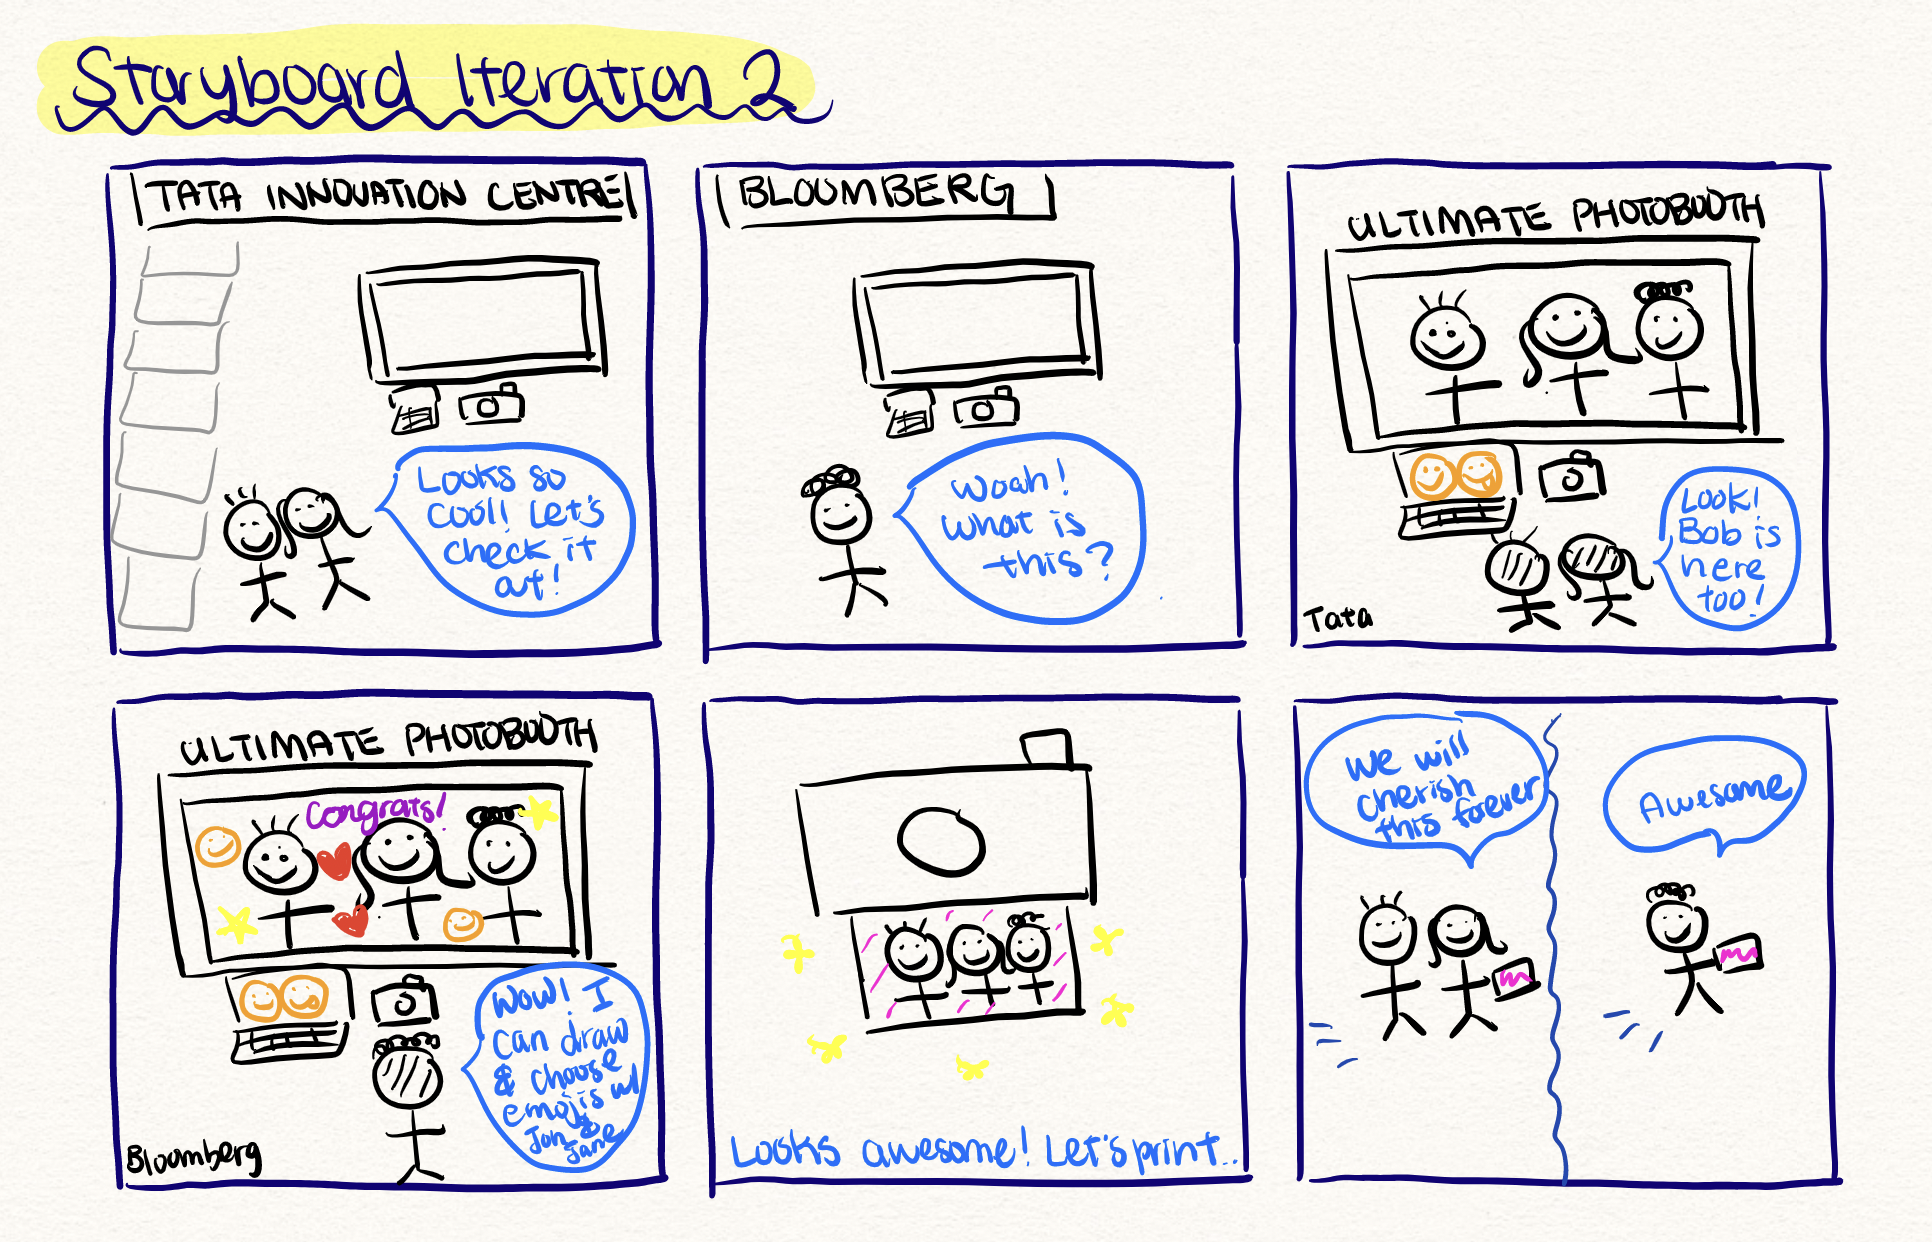 Storyboard Iteration 2
TATA INNOVATION CENTRE
Looks so
cool! Let's
check it
out!
BLOOMBERG
Woah!
what is
this?
ULTIMATE PHOTOBOOTH
Look!
Bob is
here
too!
Tata
ULTIMATE PHOTOBOOTH
Congrats!
Wow! I
can draw
& choose
emojis w/
Jon &
Jane
Bloomberg
Looks awesome! Let's print..
We will
cherish
this forever
Awesome